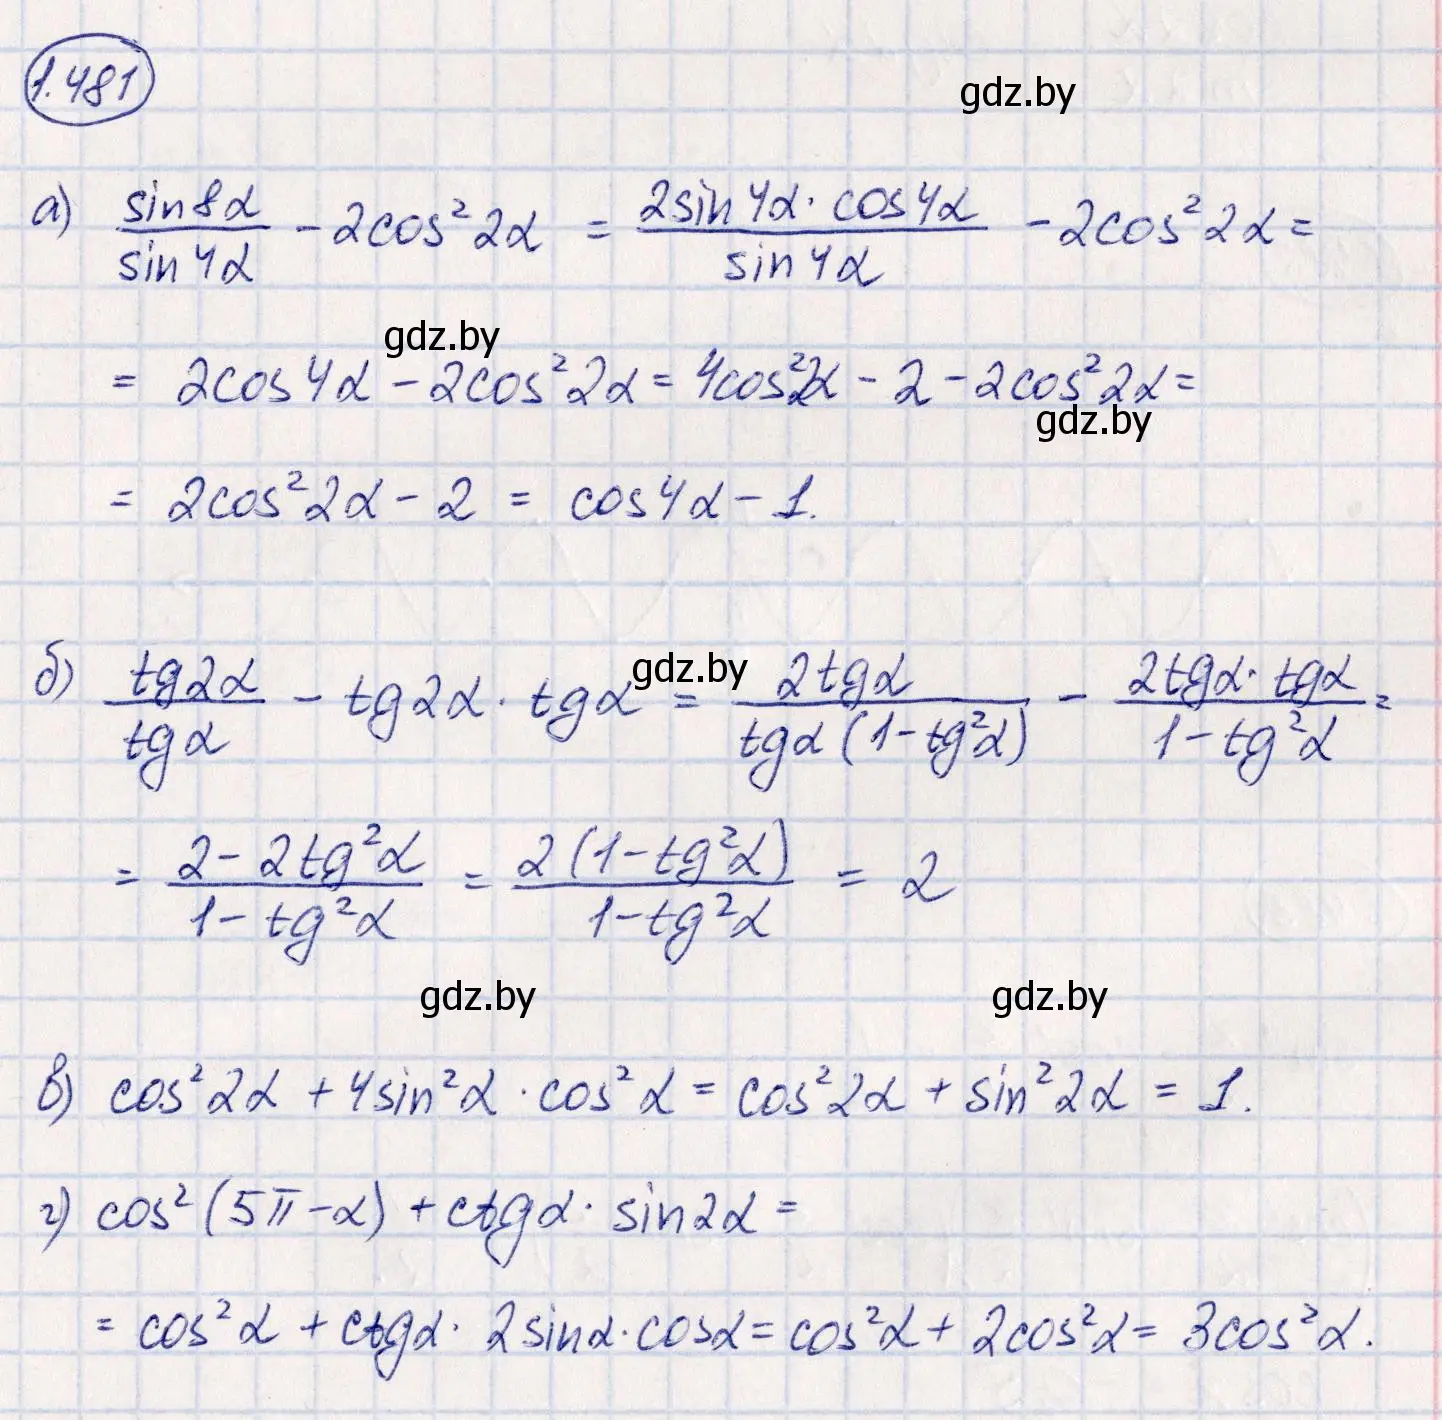 1.481
gdz.by
а) sin8α/sin4α - 2cos²2α = 2sin4α · cos4α/sin4α - 2cos²2α =
gdz.by
= 2cos4α - 2cos²2α = 4cos²2α - 2 - 2cos²2α =
gdz.by
= 2cos²2α - 2 = cos4α - 1.
gdz.by
б) tg2α/tgα - tg2α · tgα = 2tgα/tgα(1-tg²α) - 2tgα · tgα/1-tg²α =
= 2 - 2tg²α/1-tg²α = 2(1-tg²α)/1-tg²α = 2
gdz.by gdz.by
в) cos²2α + 4sin²α · cos²α = cos²2α + sin²2α = 1.
г) cos²(5π-α) + ctgα · sin2α =
= cos²α + ctgα · 2sinα · cosα = cos²α + 2cos²α = 3cos²α.